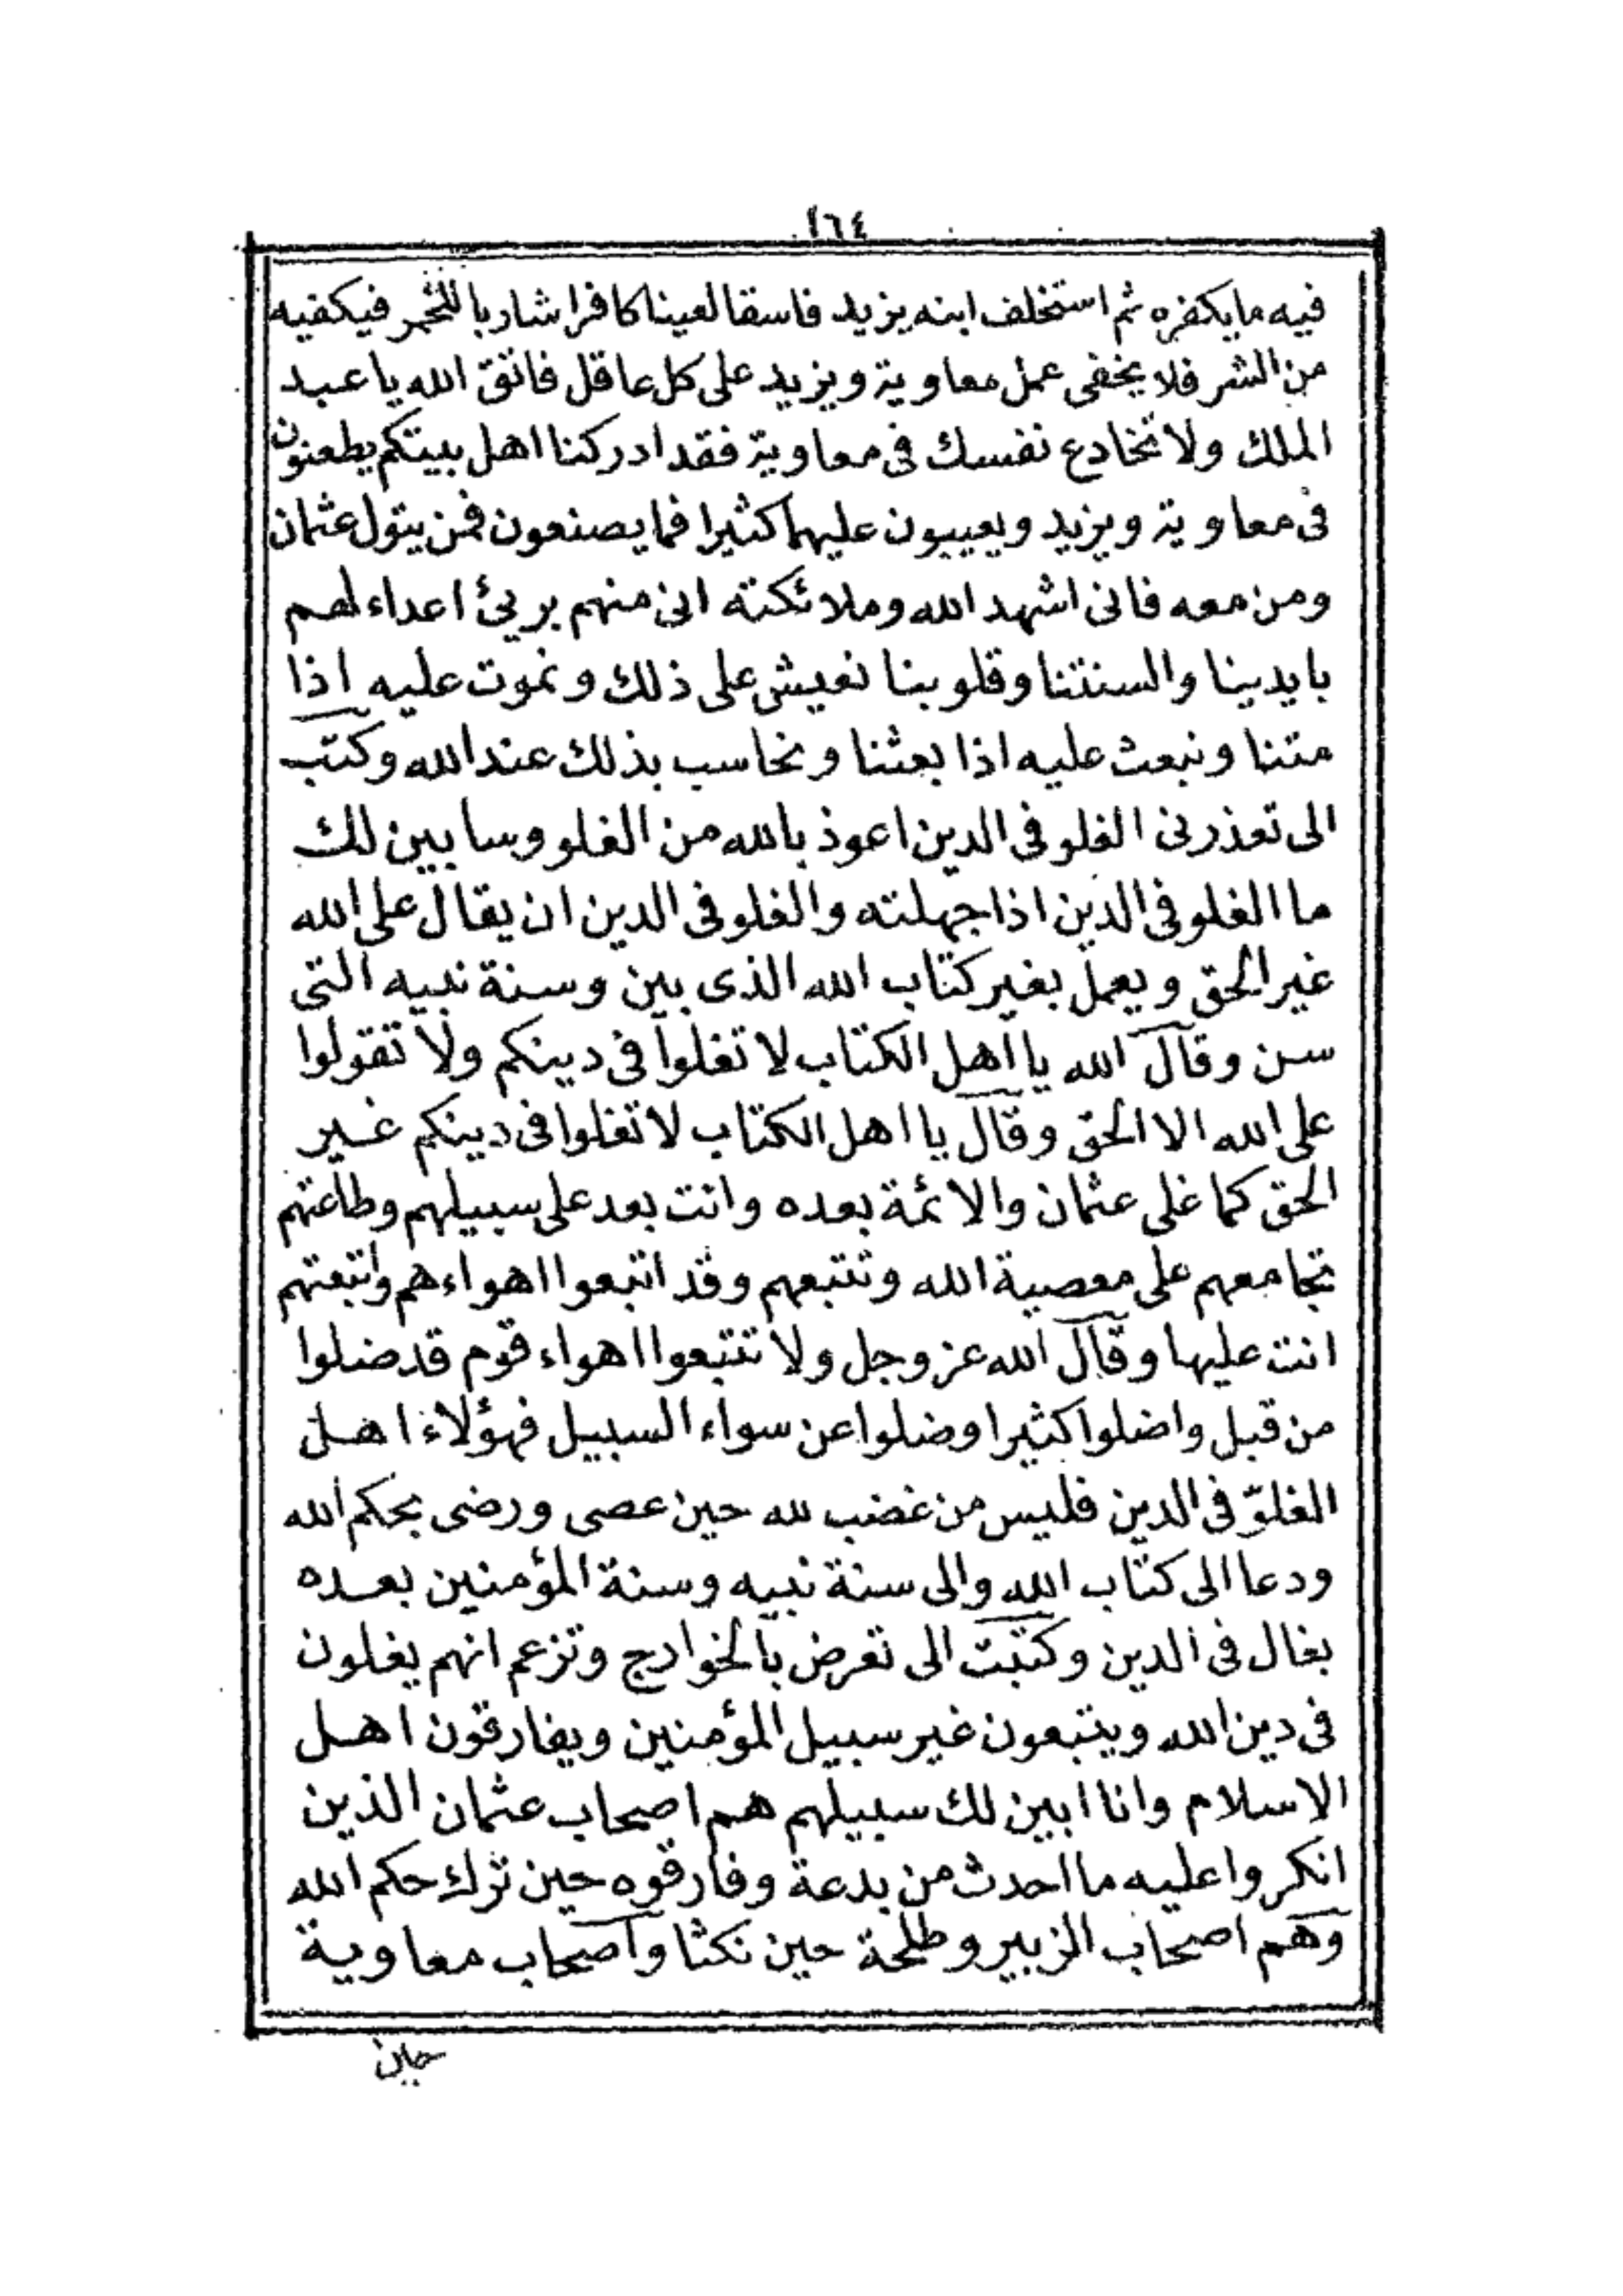 ١٦٤
فيه ما يكفره ثم استخلف ابنه يزيد فاسقا لعينا كافرا شاربا للخمر فيكفيه
من الشر فلا يخفى عمل معاوية ويزيد على كل عاقل فاتق الله يا عبد
الملك ولا تخادع نفسك فى معاوية فقد ادركنا اهل بيتكم يطعنون
فى معاوية ويزيد ويعيبون عليهما كثيرا فما يصنعون فمن يتول عثمان
ومن معه فانى اشهد الله وملائكته انى منهم بريئ اعداء لهم
بايدينا والسنتنا وقلوبنا نعيش على ذلك ونموت عليه اذا
متنا ونبعث عليه اذا بعثنا ونحاسب بذلك عند الله وكتب
الى تعذرنى الغلو فى الدين اعوذ بالله من الغلو وسابين لك
ما الغلو فى الدين اذا جهلته والغلو فى الدين ان يقال على الله
غير الحق ويعمل بغير كتاب الله الذى بين وسنة نبيه التى
سن وقال الله يا اهل الكتاب لا تغلوا فى دينكم ولا تقولوا
على الله الا الحق وقال يا اهل الكتاب لا تغلوا فى دينكم غير
الحق كما غلى عثمان والائمة بعده وانت بعد على سبيلهم وطاعتهم
تجامعهم على معصية الله وتتبعهم وقد اتبعوا اهواءهم واتبعتهم
انت عليها وقال الله عز وجل ولا تتبعوا اهواء قوم قد ضلوا
من قبل واضلوا كثيرا وضلوا عن سواء السبيل فهؤلاء اهل
الغلوّ فى الدين فليس من غضب لله حين عصى ورضى بحكم الله
ودعا الى كتاب الله والى سنة نبيه وسنة المؤمنين بعده
بغال فى الدين وكتبت الى تعرض بالخوارج وتزعم انهم يغلون
فى دين الله ويتبعون غير سبيل المؤمنين ويفارقون اهل
الاسلام وانا ابين لك سبيلهم هم اصحاب عثمان الذين
انكروا عليه ما احدث من بدعة وفارقوه حين ترك حكم الله
وهم اصحاب الزبير وطلحة حين نكثا واصحاب معاوية
حين